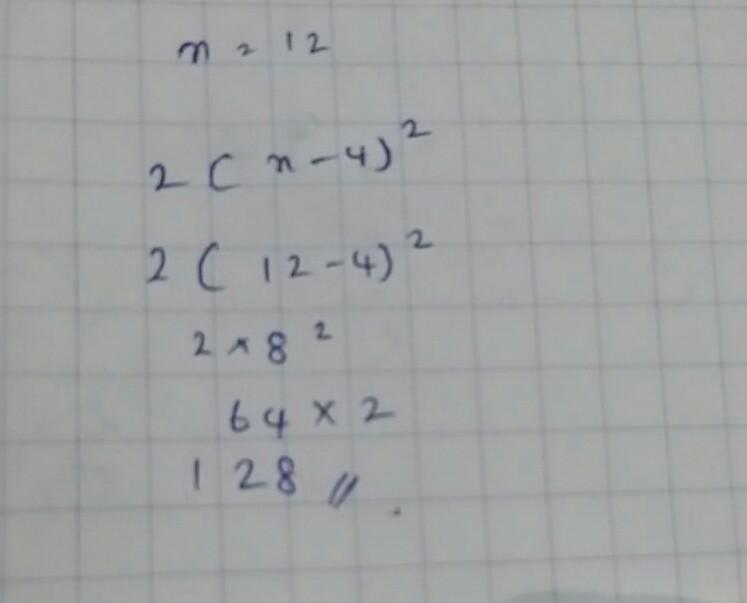 n = 12
2 ( n - 4)²
2 ( 12 - 4)²
2 × 8²
64 × 2
128 //.